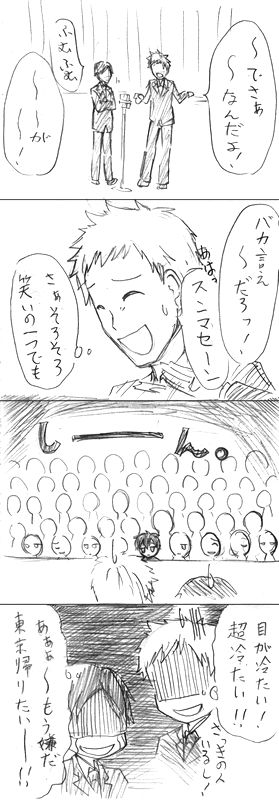 でさぁ
～
～なんだよ！
ふむふむ
～～が
～！
バカ言え
～だろっ！
あはっ
スンマセーン
さぁそろそろ
笑いの一つでも
しーーん。
目が冷たい！
超冷たい！！
さっきの人
いるし！
あぁぁ
～もう嫌だ
東京帰りたいー！！